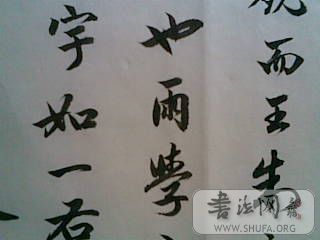 而王先
也雨學
宇如一右
書法网
WWW.SHUFA.ORG